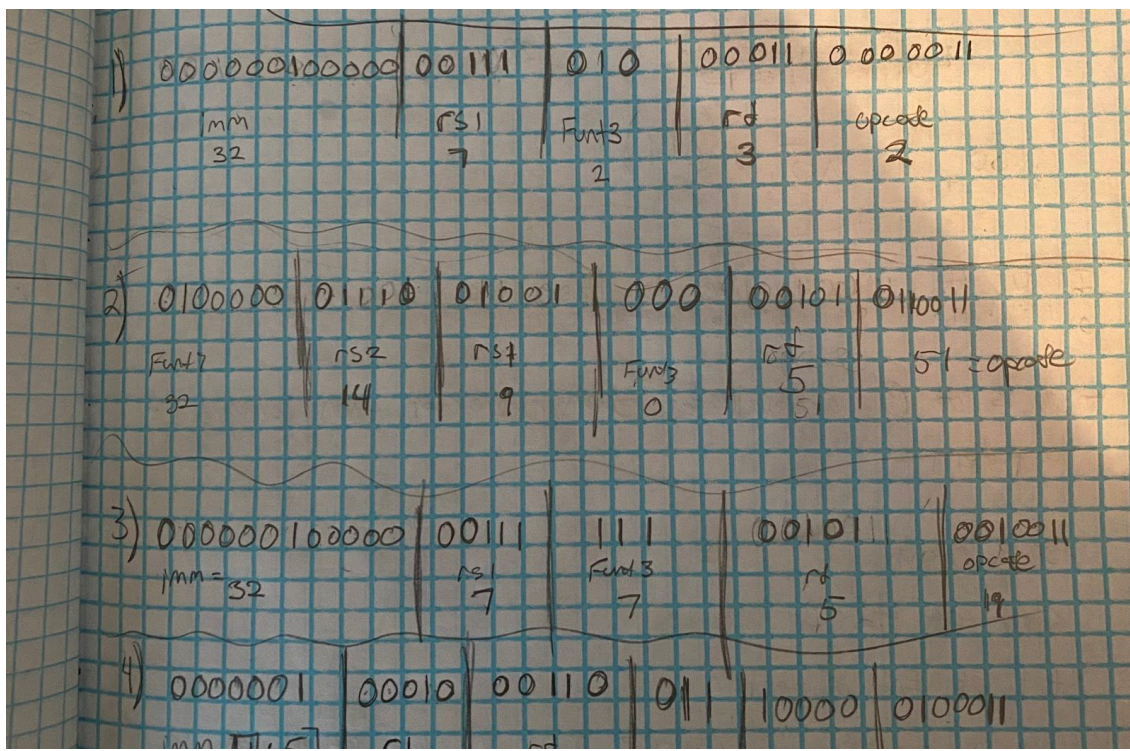 1) 000000100000 00111 010 00011 0000011
imm rs1 Funt3 rd opcode
32 7 2 3 2
2) 0100000 01110 01001 000 00101 0110011
Funt7 rs2 rs1 Funt3 rd 51 = opcode
32 14 9 0 5
51
3) 000000100000 00111 111 00101 0010011
imm = 32 rs1 Funt3 rd opcode
7 7 5 19
4) 0000001 00010 00110 011 10000 0100011
imm